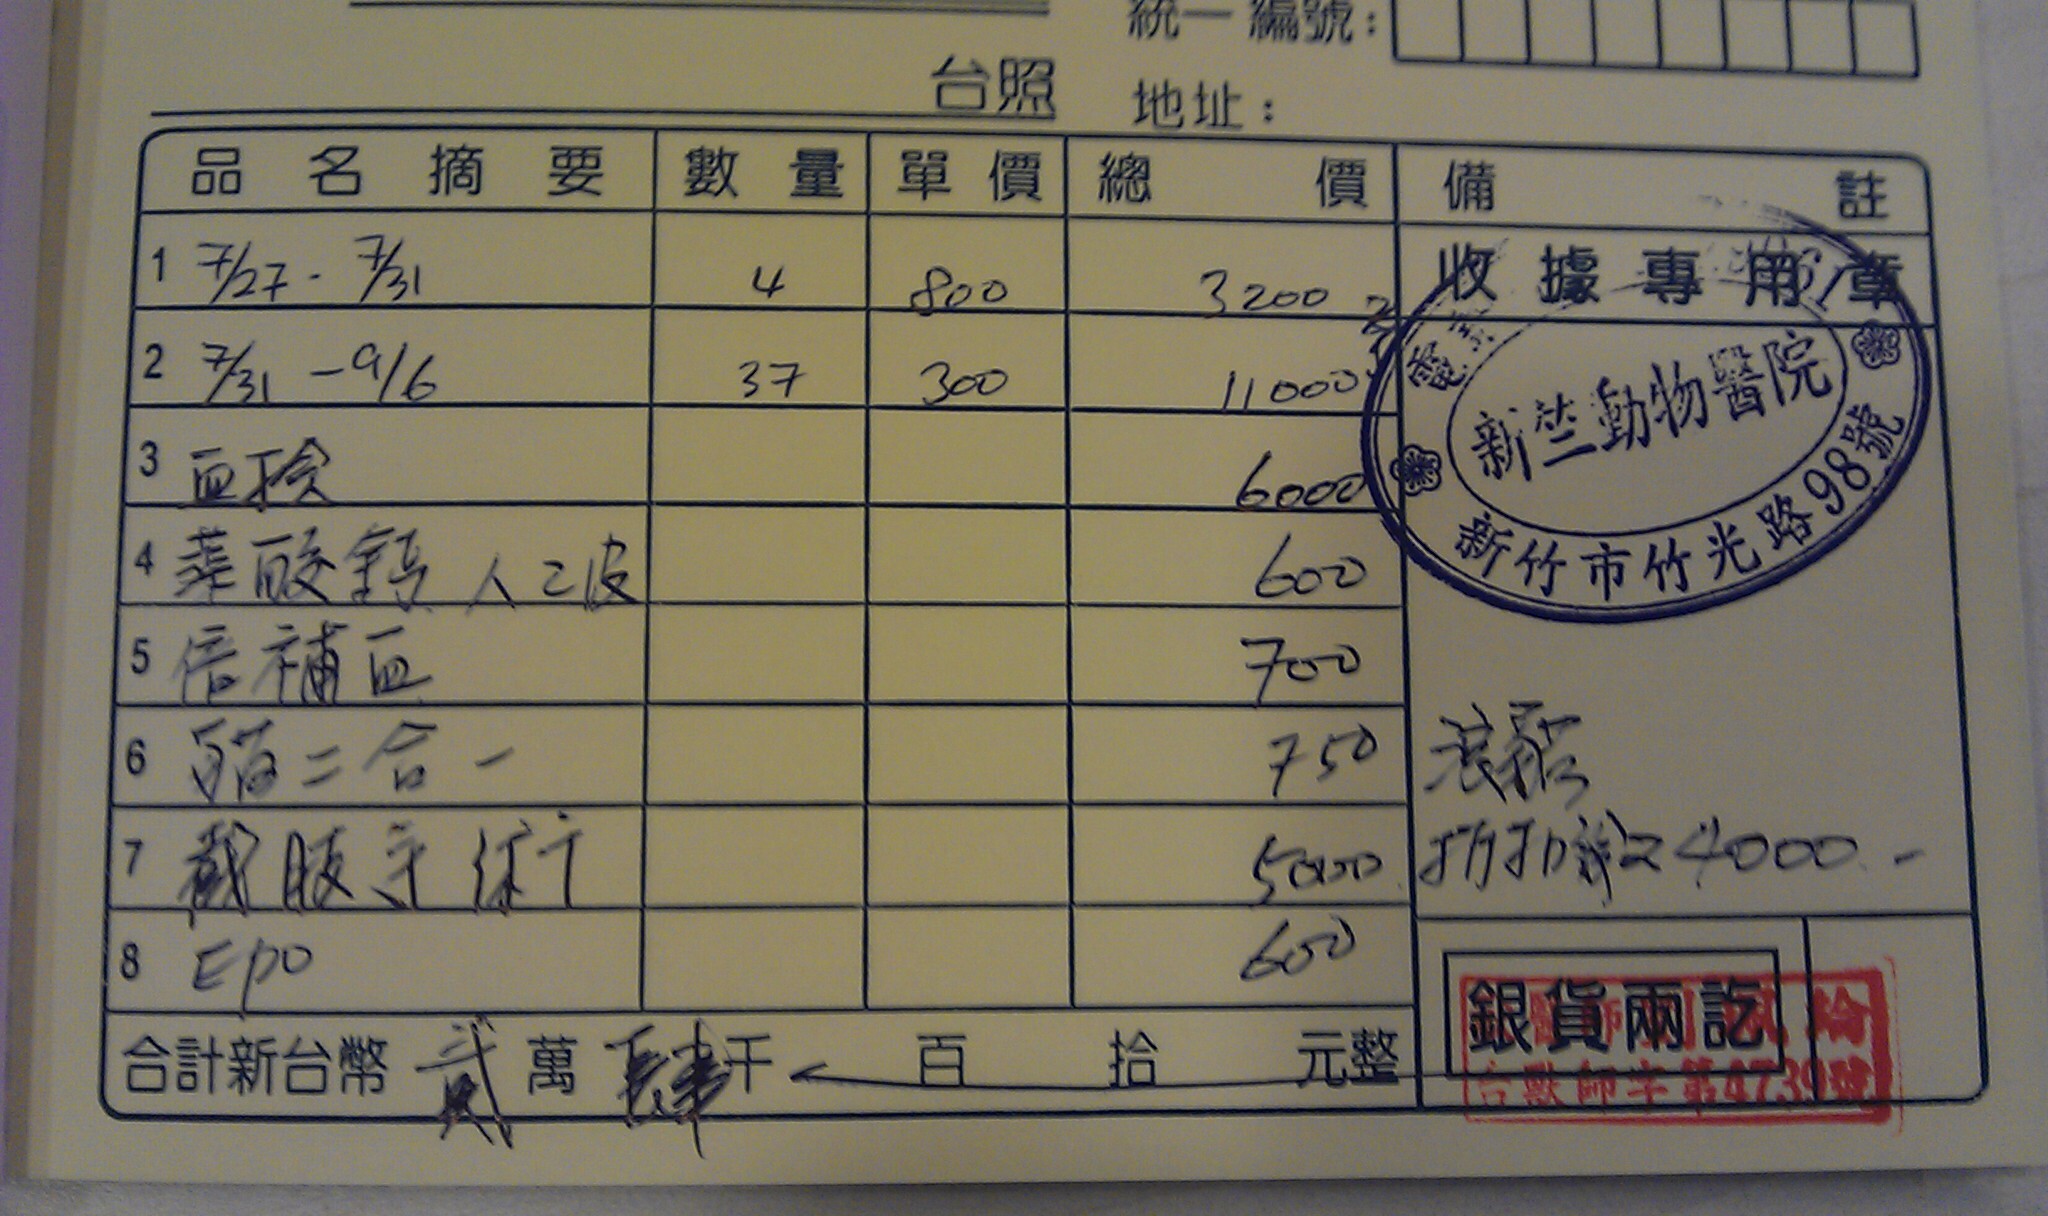 統一編號:
台照 地址:
品名摘要 數量 單價 總價 備註
1 7/27 - 7/31 4 800 3200
收據專用章
2 7/31 - 9/6 37 300 11000
新竺動物醫院
新竹市竹光路98號
3 血檢 6000
4 600
5 倍補血 700
6 貓二合一 750
浪貓
7 截肢手術 5000
折扣 24000.-
8 Epo 600
銀貨兩訖
台獸師字第4739號
合計新台幣 貳萬肆千 百 拾 元整